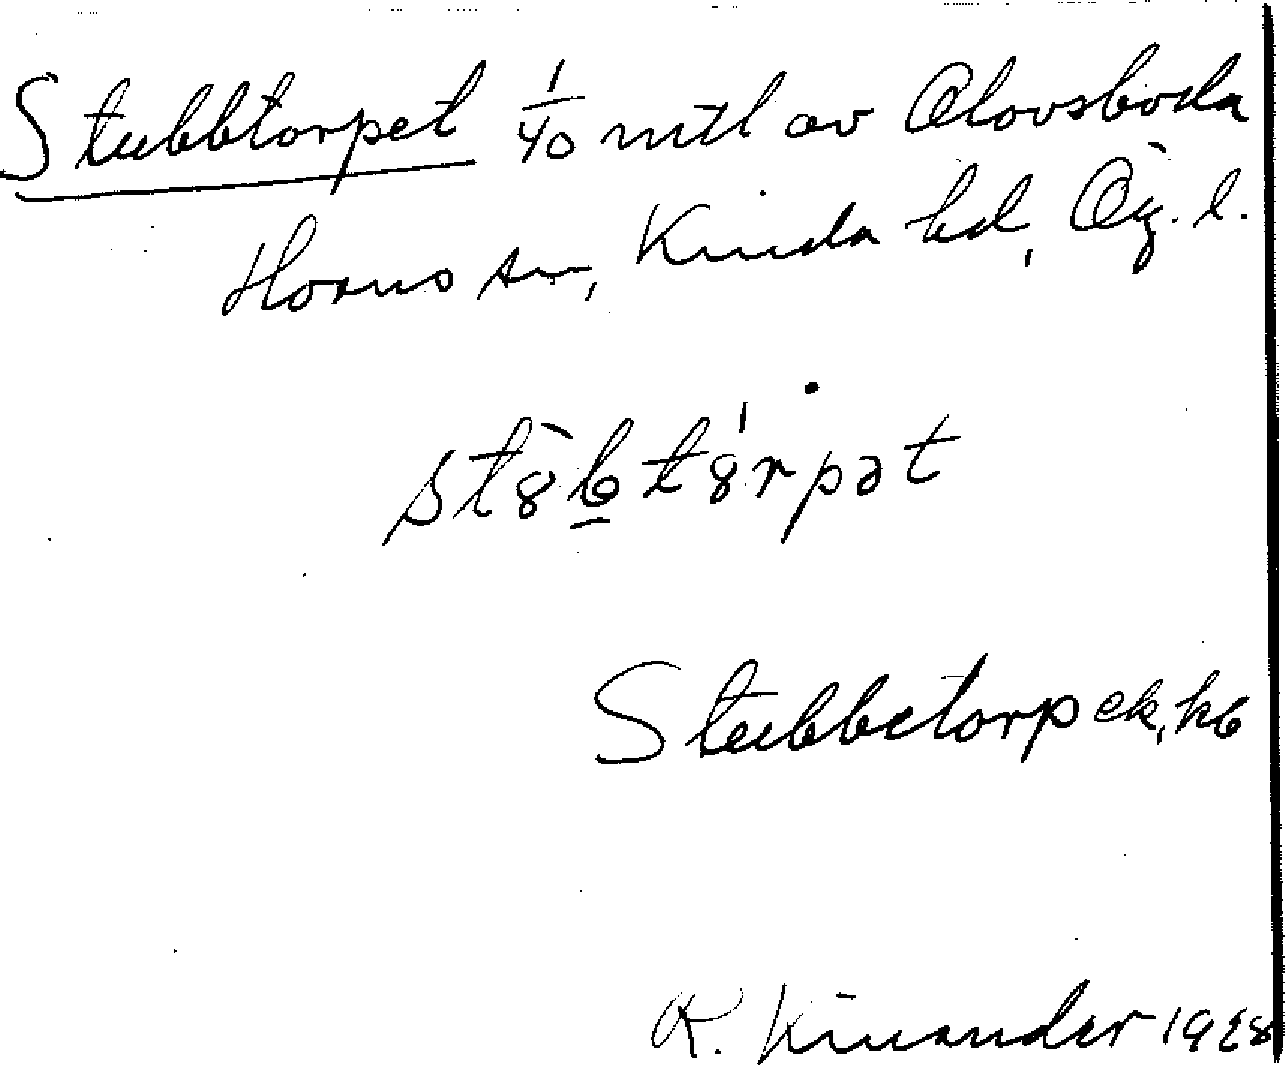 Stubbtorpet 1/40 mtl av Olovsboda
Horns sn, Kinda hd, Ög. l.
st8̀bt8́rpət
Stubbetorp ek, kb
K. Kinander 1928